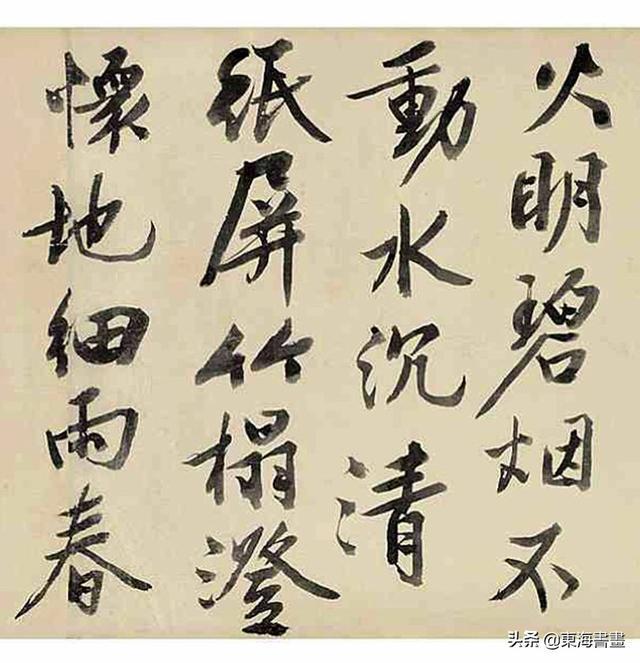 火明碧烟不
動水沉清
紙屏竹榻澄
懷地細雨春
头条 @東海書畫